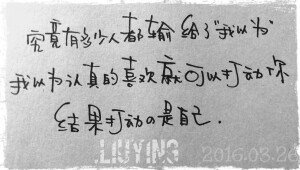 究竟有多少人都输给了"我以为"
我以为认真的喜欢就可以打动你
结果打动の是自己.
.LIUYING 2016.03.26